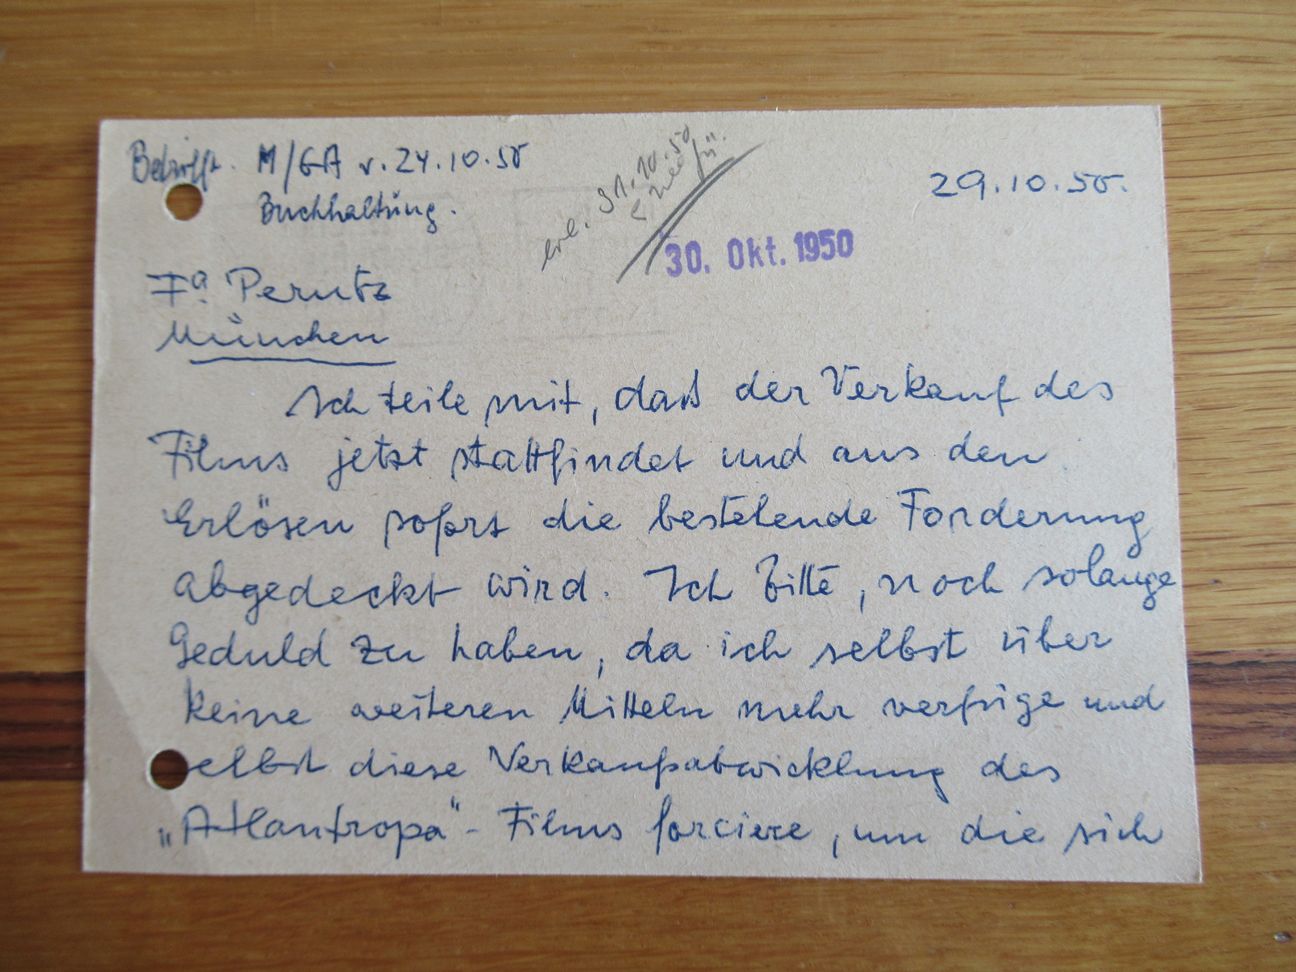 Betrifft. M/GA v. 24.10.50
Buchhaltung.
29.10.50.
erl. 31.10.50
30. Okt. 1950
Fa. Perutz
München
Ich teile mit, daß der Verkauf des
Films jetzt stattfindet und aus den
Erlösen sofort die bestehende Forderung
abgedeckt wird. Ich bitte, noch solange
Geduld zu haben, da ich selbst über
keine weiteren Mitteln mehr verfüge und
selbst diese Verkaufsabwicklung des
„Atlantropa"-Films forciere, um die sich